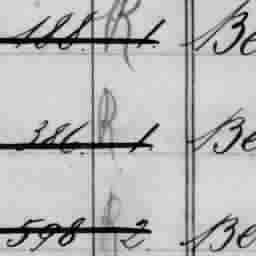 188. R 1. Be
386. R 1. Be
598 R 2. Be